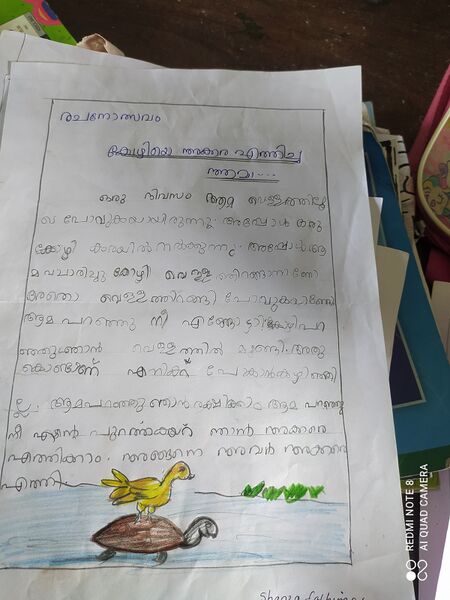 രചനോത്സവം
കോഴിയെ അക്കരെ എത്തിച്ച
ആമ...
ഒരു ദിവസം ആമ വെള്ളത്തിലൂ
ടെ പോവുകയായിരുന്നു. അപ്പോൾ ഒരു
കോഴി കരയിൽ നൽക്കുന്നു. അപ്പോൾ ആ
മ വിചാരിച്ചു കോഴി വെള്ളത്തിറങ്ങാനാണോ
അതൊ വെള്ളത്തിറങ്ങി പോവുകയാണോ
ആമ പറഞ്ഞു നീ എങ്ങോട്ടാ കോഴി പറ
ഞ്ഞു ഞാൻ വെള്ളത്തിൽ മുങ്ങി. അതു
കൊണ്ടാണ് എനിക്ക് പോകാൻ കഴിഞ്ഞി
ല്ല. ആമ പറഞ്ഞു ഞാൻ രക്ഷിക്കാം ആമ പറഞ്ഞു
നീ എൻ്റെ പുറത്ത്കയറ് ഞാൻ അക്കരെ
എത്തിക്കാം. അങ്ങനെ അവർ അക്കരെ
എത്തി.
REDMI NOTE 8
AI QUAD CAMERA